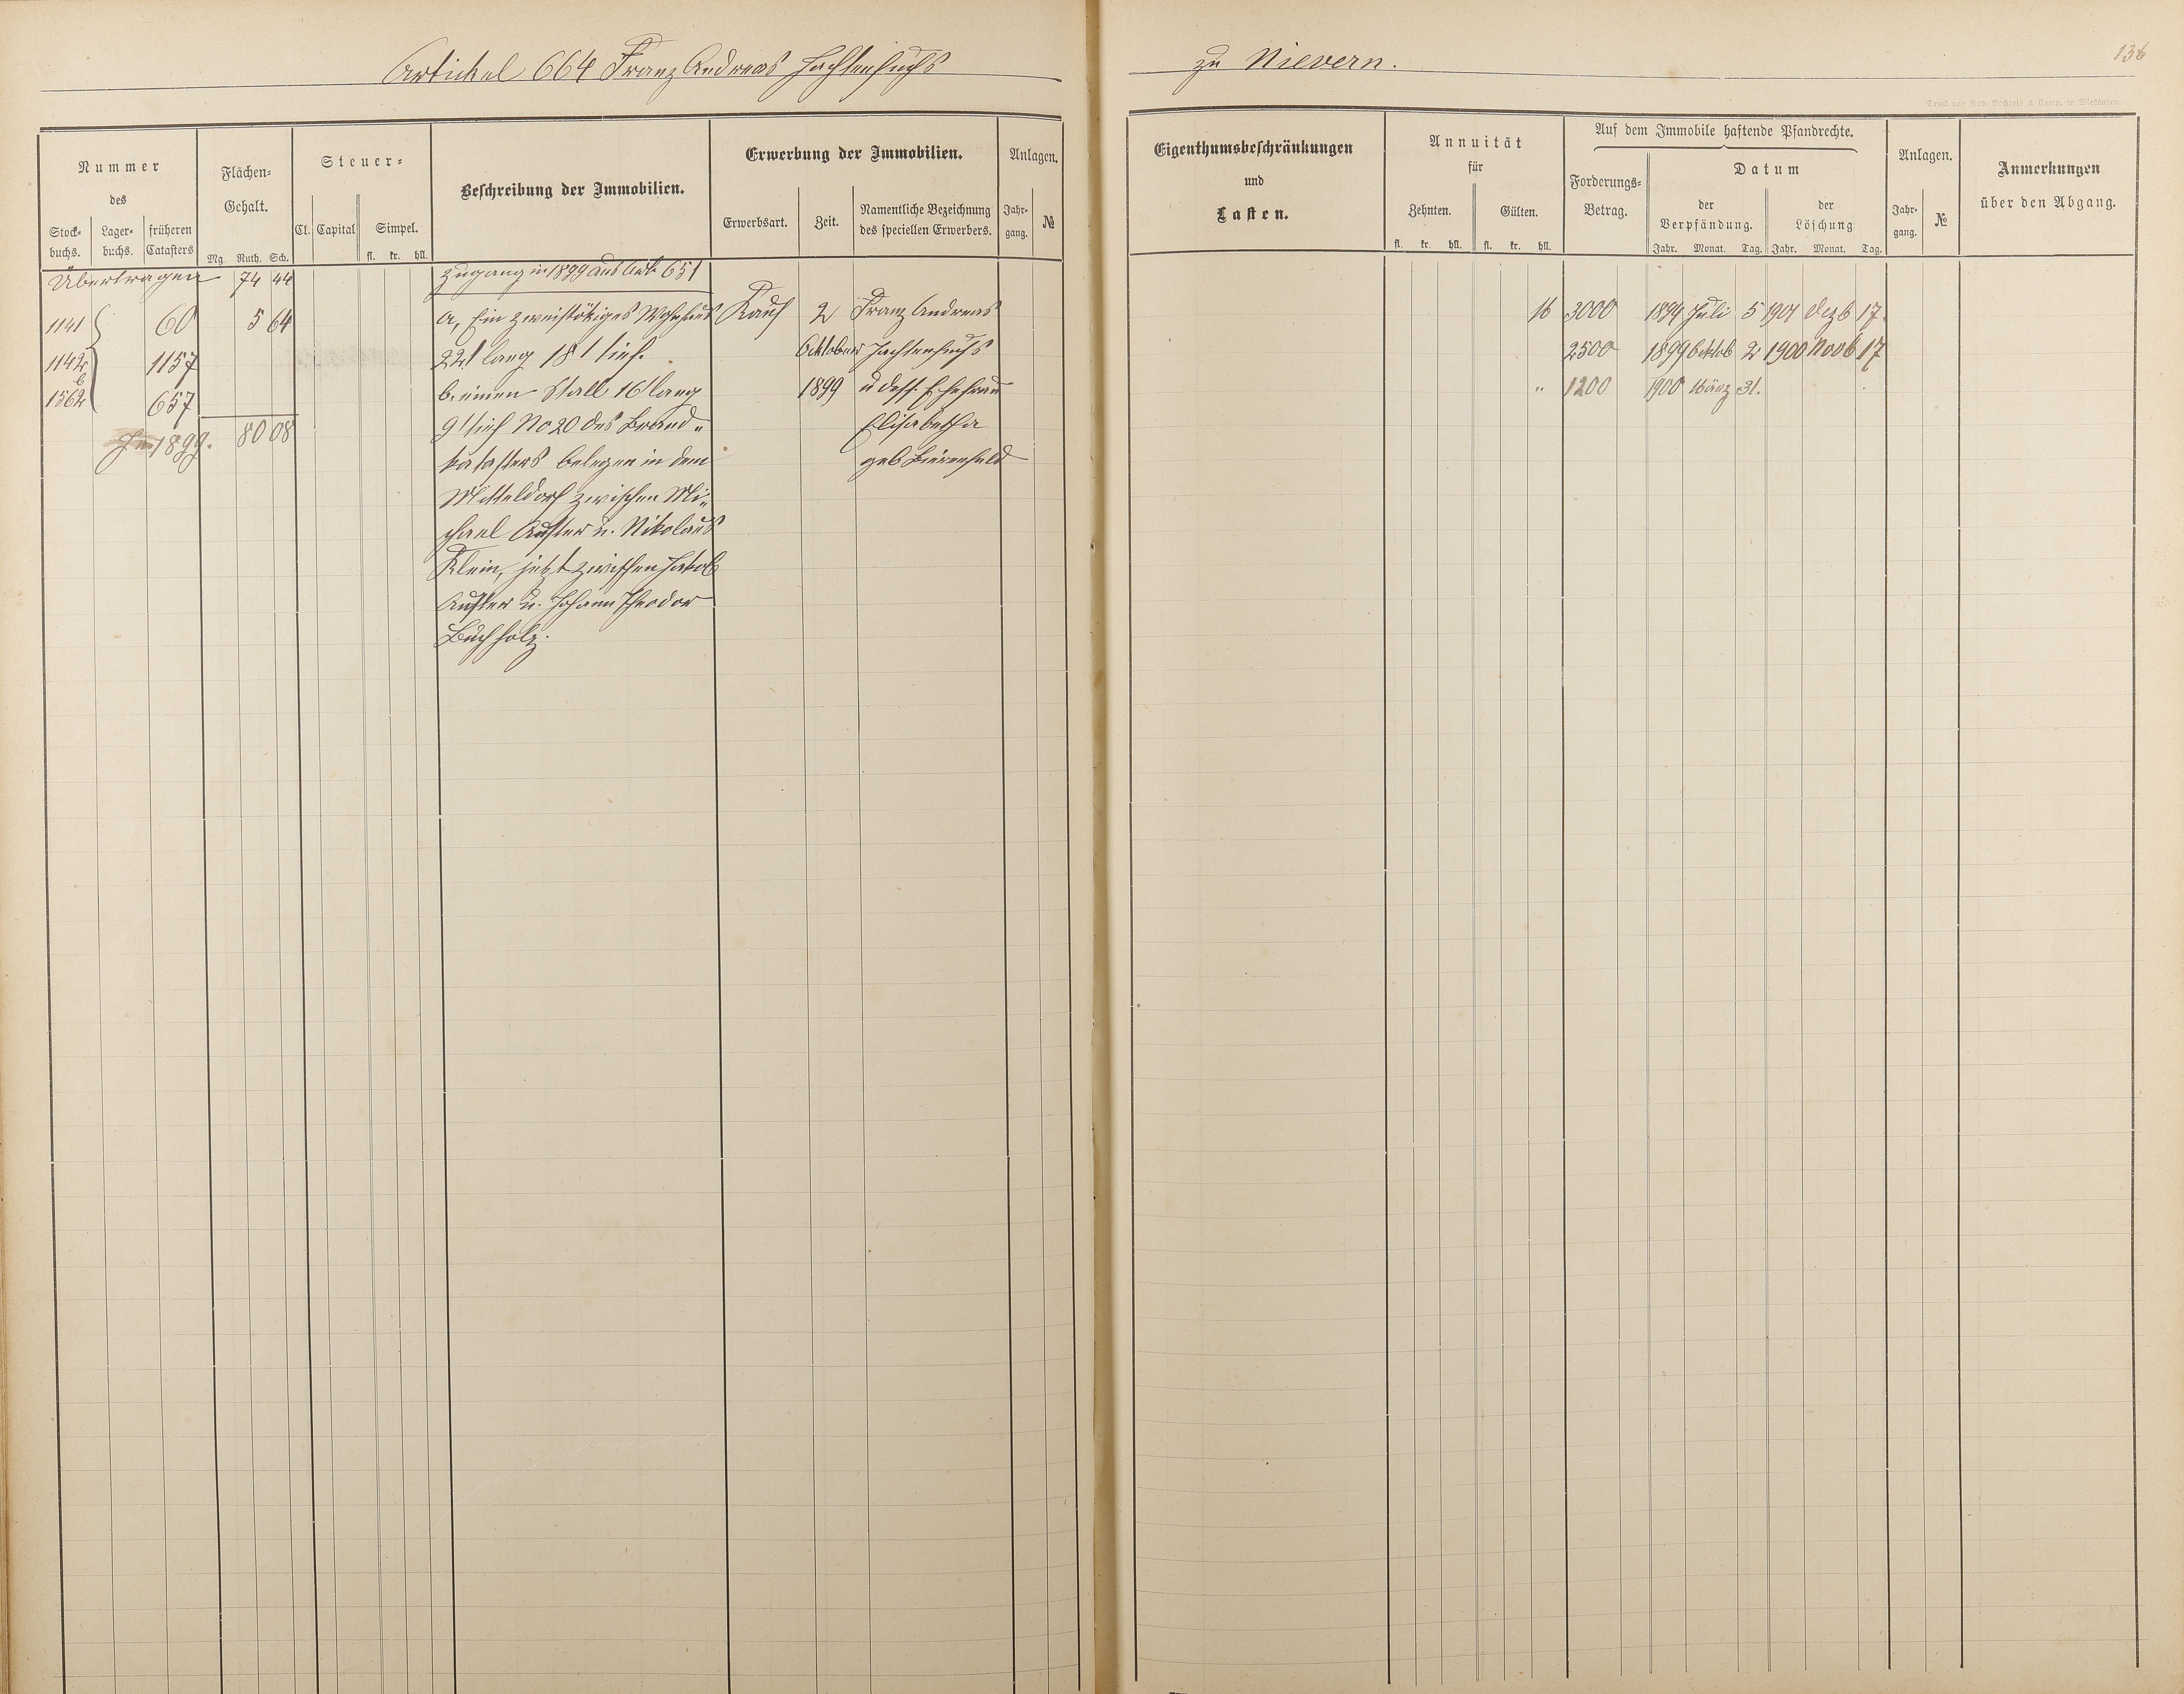 Artickel 664 Franz Andreas Jachtenfuchs
zu Nievern.
136
Druck von Rud. Bechtold & Comp. in Wiesbaden.
Nummer
des
Stock-
buchs.
Lager-
buchs.
früheren
Catasters
Flächen-
Gehalt.
Mg. Ruth. Sch.
Steuer-
Cl. Capital
Simpel.
fl. kr. hll.
Beschreibung der Immobilien.
Erwerbung der Immobilien.
Erwerbsart.
Zeit.
Namentliche Bezeichnung
des speciellen Erwerbers.
Anlagen.
Jahr-
gang.
№
Eigenthumsbeschränkungen
und
Lasten.
Annuität
für
Zehnten.
Gülten.
fl. kr. hll. fl. kr. hll.
Auf dem Immobile haftende Pfandrechte.
Forderungs-
Betrag.
Datum
der
Verpfändung.
der
Löschung
Jahr. Monat. Tag. Jahr. Monat. Tag.
Anlagen.
Jahr-
gang.
№
Anmerkungen
über den Abgang.
Übertragen 74 44
Zugang in 1899 aus Art. 651
1141 60 5 64
1142 1157
b
1562 657
In 1899. 80 08
a, Ein zweistökiges Wohnhaus
22' lang 18' tief.
b. einen Stall 16' lang
9' tief No 20 des Brand-
katasters belegen in dem
Mitteldorf zwischen Mi-
chael Auster u. Nikolaus
Klein, jetzt zwischen Jakob
Auster u. Johann Theodor
Buchholz.
Kauf
2
Ocktober
1899
Franz Andreas
Jachtenfuchs
u dess. Ehefrau
Elisabetha
geb Bierenfeld
16 3000 1894 Juli 5 1901 Dezb 17.
2500 1899 Ocktob 2 1900 Novb 17
" 1200 1900 März 31.